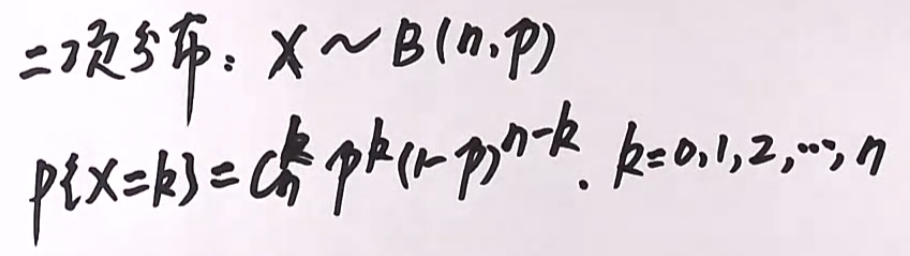 二项分布：X ~ B(n, p)
P{X=k} = C_n^k p^k (1-p)^{n-k}. k=0,1,2,…,n